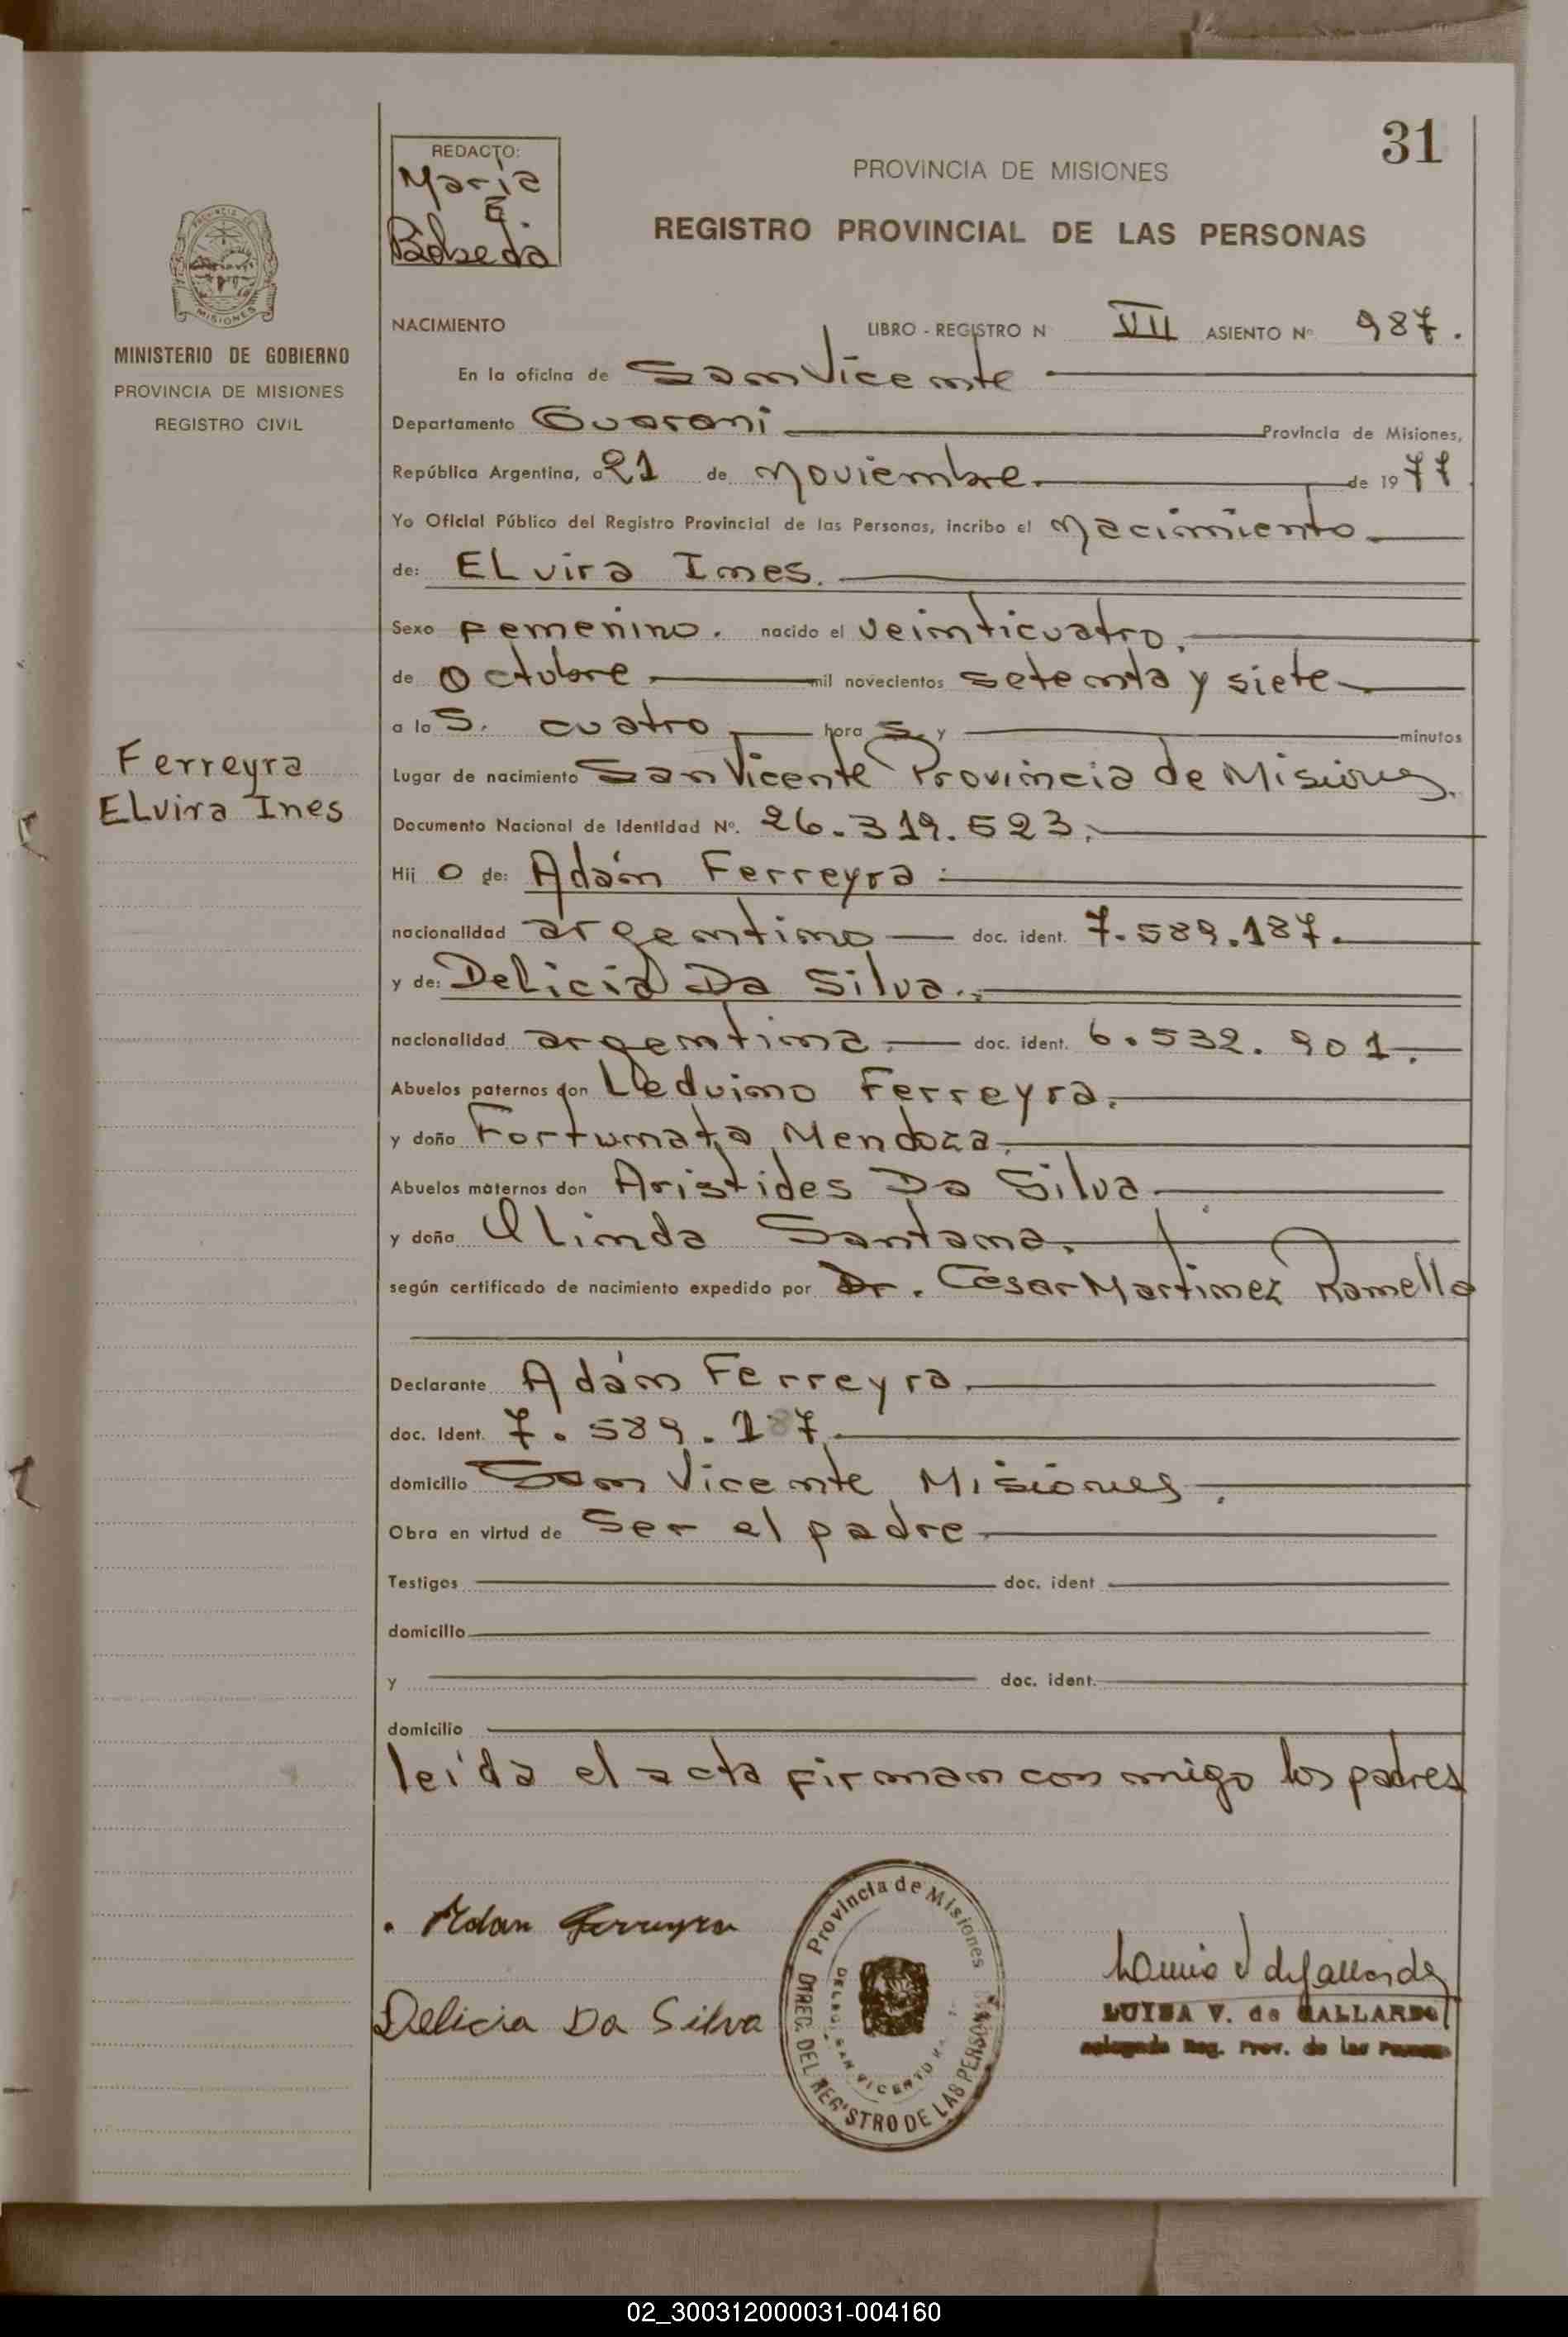 31
REDACTO:
María
E.
PROVINCIA DE MISIONES
REGISTRO PROVINCIAL DE LAS PERSONAS
MISIONES
MINISTERIO DE GOBIERNO
PROVINCIA DE MISIONES
REGISTRO CIVIL
NACIMIENTO LIBRO - REGISTRO N VII ASIENTO Nº 987.
En la oficina de San Vicente
Departamento Guaraní Provincia de Misiones,
República Argentina, a 21 de Noviembre de 1977
Yo Oficial Público del Registro Provincial de las Personas, incribo el Nacimiento
de: ELvira Ines.
Sexo Femenino. nacido el veinticuatro.
de Octubre mil novecientos setenta y siete
a las. cuatro horas. y minutos
Ferreyra
ELvira Ines
Lugar de nacimiento San Vicente Provincia de Misiones.
Documento Nacional de Identidad Nº. 26.319.523.
Hij o de: Adán Ferreyra
nacionalidad argentino doc. ident. 7.589.187.
y de: Delicia Da Silva.
nacionalidad argentina. doc. ident. 6.532.901.
Abuelos paternos don Leduino Ferreyra.
y doña Fortunata Mendoza.
Abuelos maternos don Aristides Da Silva
y doña Olinda Santana.
según certificado de nacimiento expedido por Dr. Cesar Martinez Ramella
Declarante Adán Ferreyra.
doc. Ident. 7.589.187.
domicilio San Vicente Misiones.
Obra en virtud de Ser el padre
Testigos doc. ident
domicilio
y doc. ident.
domicilio
leída el acta firman con migo los padres
Adan Ferreyra
Delicia Da Silva
Provincia de Misiones
DIREC. DEL REGISTRO DE LAS PERSONAS
LUISA V. de GALLARDO
Reg. Prov. de las
02_300312000031-004160